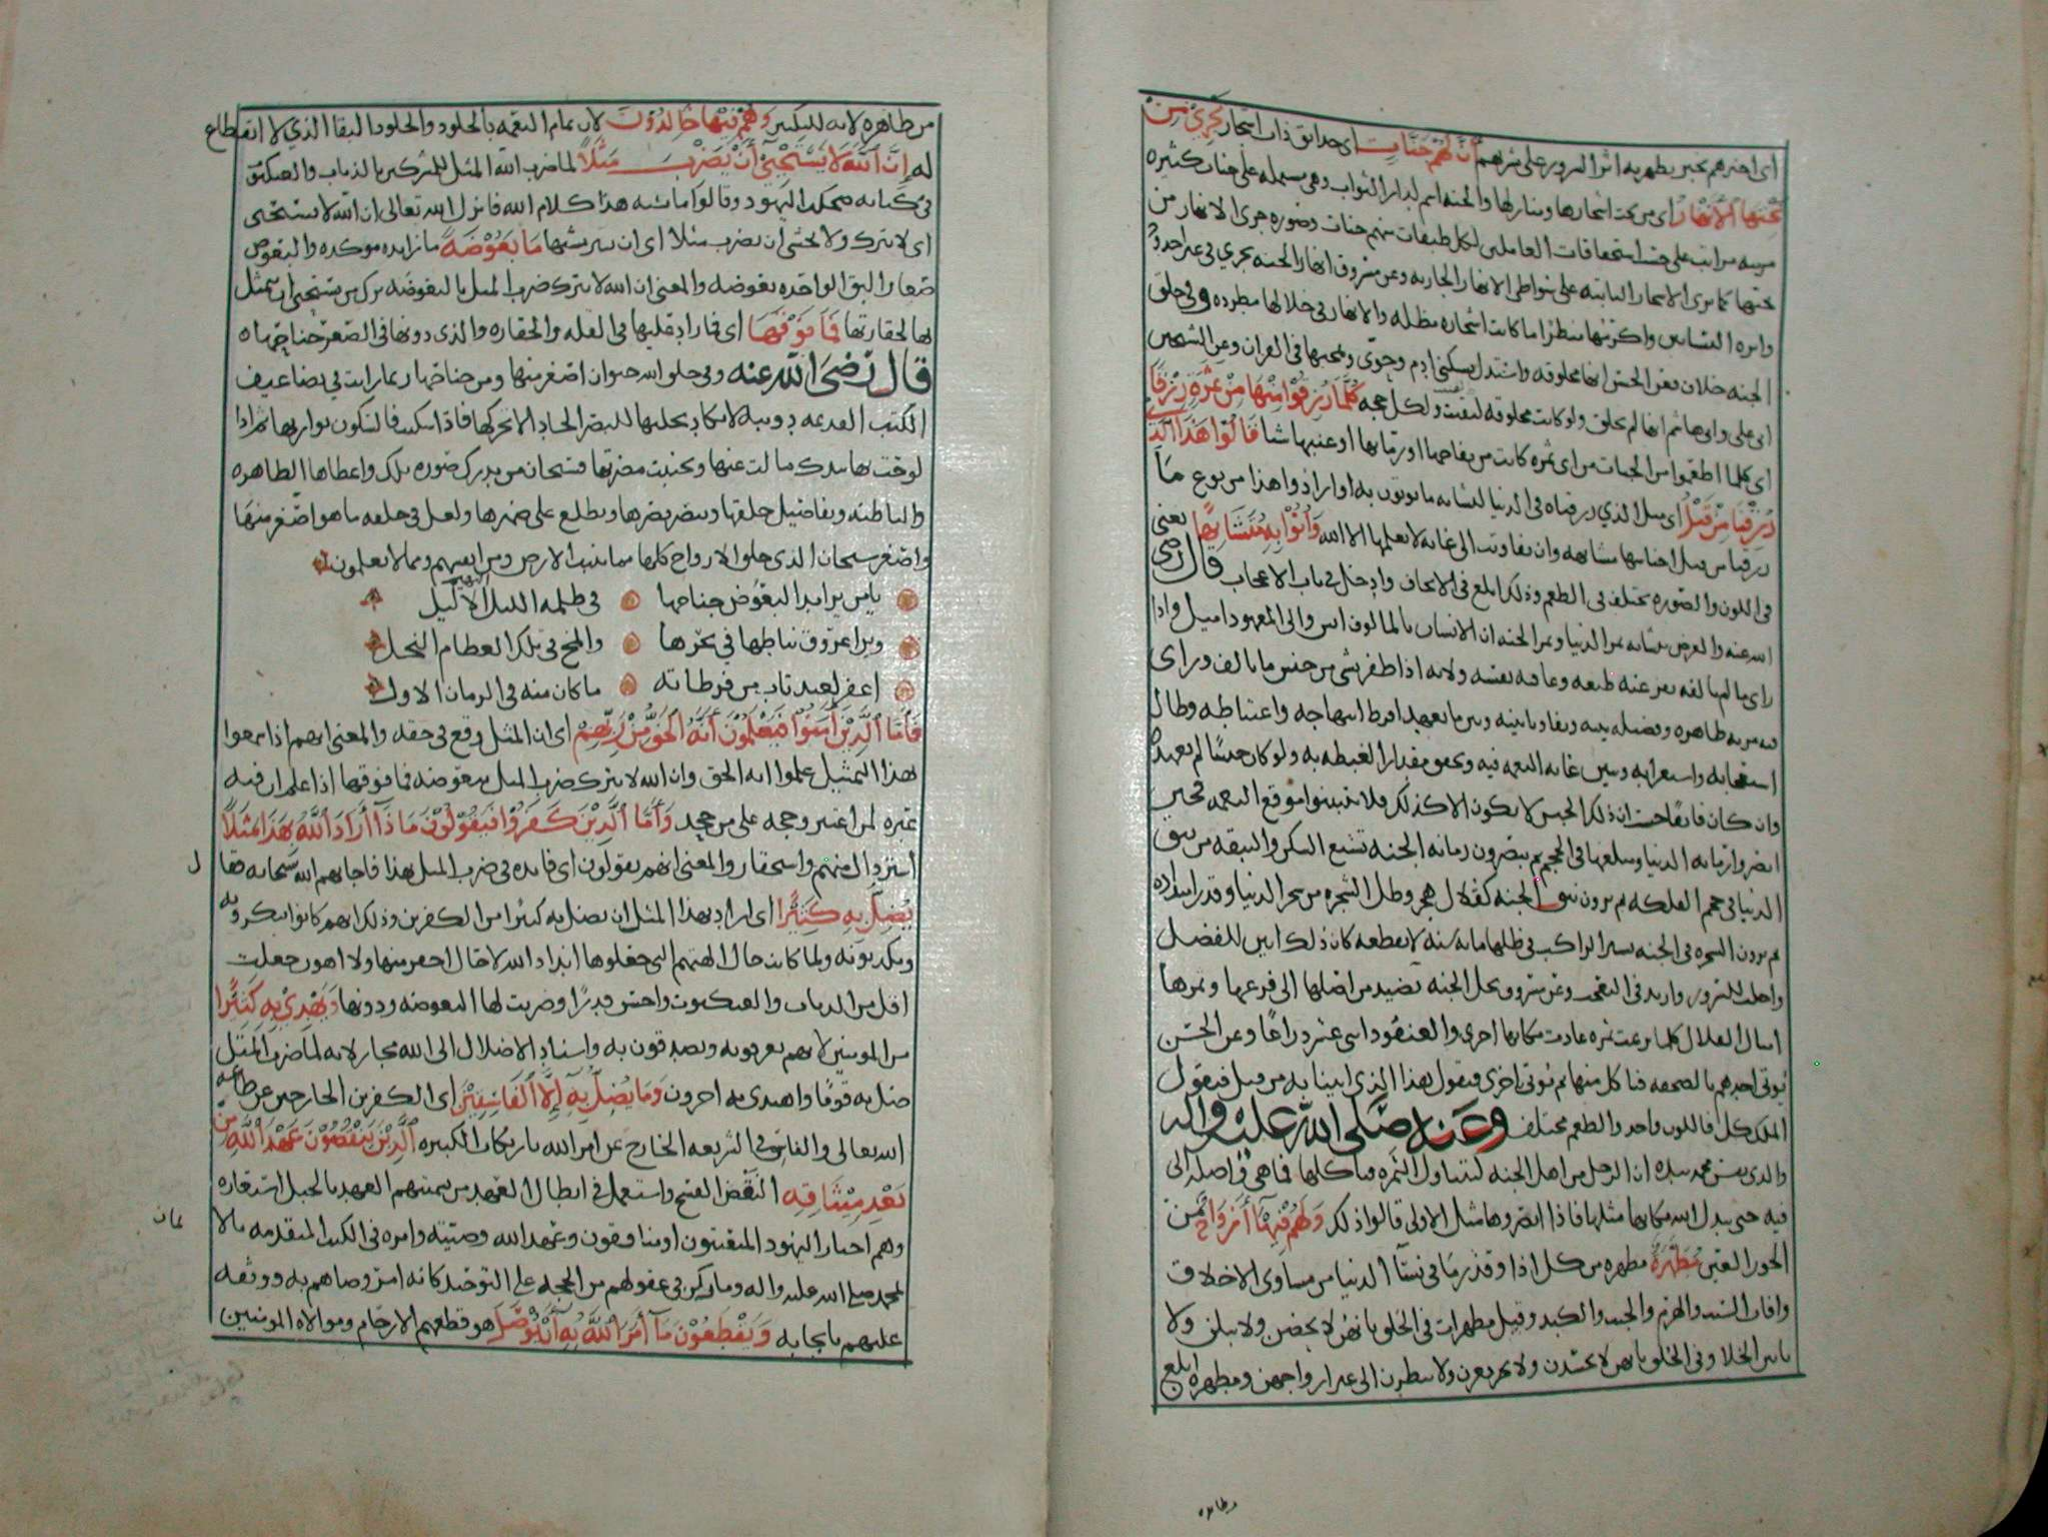 اي اخبرهم بخبر يظهر به اثر السرور على بشرهم أَنَّ لَهُمْ جَنَّاتٍ اي حدائق ذات اشجار تَجْرِيْ مِنْ
تَحْتِهَا الْأَنْهَارُ اي من تحت اشجارها ومنازلها والجنه اسم لدار الثواب وهي مشتمله على جنات كثيره
مرتبه مراتب على حسب استحقاقات العاملين لكل طبقات منهم جنات وصوره جري الانهار من
تحتها كما ترى الاشجار النابته على شواطى الانهار الجاريه وعن مسروق انهار الجنه تجري في غير اخدود
وانزه البساتين واكرمها منظرا ما كانت اشجاره مظله والانهار في خلالها مطرده وفي خلق
الجنه خلاف فعن الحسن انها مخلوقه واستدل بسكنى ادم وحوى ومجيها في القران وعن الشيخين
ابي علي وابي هاشم انها لم تخلق ولو كانت مخلوقه لفنيت ولكل حجه كُلَّمَا رُزِقُوْا مِنْهَا مِنْ ثَمَرَةٍ رِزْقًا
اي كلما اطعموا من الجنات من اي ثمره كانت من تفاحها او رمانها او عنبها شيا قَالُوْا هَذَا الَّذِيْ
رُزِقْنَا مِنْ قَبْلُ اي مثل الذي رزقناه في الدنيا لتشابه ما يوتون به او ارادوا هذا من نوع ما
رزقنا من قبل اجناسها متشابهه وان تفاوتت الى غايه لا يعلمها الا الله وَأُتُوْا بِهِ مُتَشَابِهًا يعني
في اللون والصوره يختلف في الطعم وذلك ابلغ في الاتحاف وادخل في باب الاعجاب قال رضي
الله عنه والغرض بتشابه ثمر الدنيا وثمر الجنه ان الانسان بالمالوف انس والى المعهود اميل واذا
راى ما لم يالفه نفر عنه طبعه وعافته نفسه ولانه اذا ظفر بشي من جنس ما يالف وراى
فيه مزيه ظاهره وفضيله بينه وتفاوتا بينه وبين ما يعهد افرط ابتهاجه واغتباطه وطال
استعجابه واستغرابه وتبين غايه النعمه فيه وتحقق مقدار الغبطه به ولو كان جنسا لم يعهده
وان كان فايقا حسب ان ذلك الجنس لا يكون الا كذلك فلا يتبينوا موقع النعمه فحين
ابصروا الرمانه الدنيا ومبلغها في الحجم ثم يبصرون رمانه الجنه تشبع السكن والنبقه من نبق
الدنيا في حجم الفلكه ثم يرون نبق الجنه كقلال هجر وظل الشجره من شجر الدنيا وقدر امتداده
ثم يرون الشجره في الجنه يسير الراكب في ظلها مايه سنه لا يقطعه كان ذلك ابين للفضل
واجلب للسرور وازيد في التعجب وعن مسروق نخل الجنه نضيد من اصلها الى فرعها وثمرها
امثال القلال كلما نزعت ثمره عادت مكانها اخرى والعنقود اثني عشر ذراعًا وعن الحسن
يوتى احدهم بالصحفه فياكل منها ثم يوتى باخرى فيقول هذا الذي اتينا به من قبل فيقول
الملك كل فاللون واحد والطعم مختلف وعنه صلى الله عليه واله
والذي نفس محمد بيده ان الرجل من اهل الجنه ليتناول الثمره فياكلها فما هي واصله الى
فيه حتى يبدل الله مكانها مثلها فاذا ابصروها مثل الاولى قالوا ذلك وَلَهُمْ فِيْهَا أَزْوَاجٌ من
الحور العين مُطَهَّرَةٌ مطهره من كل اذا وقذر مما في نسآ الدنيا من مساوى الاخلاق
وافات الشيب والهرم والجبن والكبد وقيل مطهرات في الخلق بانهن لا يحضن ولا يبلن ولا
ياتين الخلا وفي الخلق بانهن لا يحسدن ولا يغرن ولا ينظرن الى غير ازواجهن ومطهره ابلغ
وطاهره
من طاهره لانه للتكثير وَهُمْ فِيْهَا خَالِدُوْنَ لان تمام النعمه بالخلود والخلود البقا الذي لا انقطاع
له إِنَّ اللَّهَ لَا يَسْتَحْيِيْ أَنْ يَضْرِبَ مَثَلًا لما ضرب الله المثل للمشركين بالذباب والعنكبوت
في كتابه ضحكت اليهود وقالوا ما يشبه هذا كلام الله فانزل الله تعالى ان الله لا يستحيى
اي لا يترك ولا يخشى ان يضرب مثلا اي ان يبين شبها مَا بَعُوْضَةً ما زايده موكده والبعوض
صغار البق الواحده بعوضه والمعنى ان الله لا يترك ضرب المثل بالبعوضه ترك من يستحيي ان يتمثل
بها لحقارتها فَمَا فَوْقَهَا اي فما زاد عليها في القله والحقاره والذي دونها في الصغر جناحها ه
قال رضي الله عنه وفي خلق الله حيوان اصغر منها ومن جناحها ربما رايت في تضاعيف
الكتب القديمه دويبه لا يكاد يجليها للبصر الحاد الا تحركها فاذا سكنت فالسكون يواريها ثم اذا
لوحت لها بيدك حادت عنها وتجنبت مضرتها فسبحان من يدرك صوره تلك واعضاها الظاهره
والباطنه وتفاصيل خلقها ويبصر بصرها ويطلع على ضميرها ولعل في خلقه ما هو اصغر منها
واصغر سبحان الذي خلق الازواج كلها مما تنبت الارض ومن انفسهم ومما لا يعلمون
يا من يرا مد البعوض جناحها في ظلمه الليل البهيم الاليل
ويرا عروق نياطها في نحرها والمخ في تلك العظام النحل
اغفر لعبد تاب من فرطاته ما كان منه في الزمان الاول
فَأَمَّا الَّذِيْنَ آمَنُوْا فَيَعْلَمُوْنَ أَنَّهُ الْحَقُّ مِنْ رَبِّهِمْ اي ان المثل وقع في حقه والمعنى انهم اذا سمعوا
بهذا التمثيل علموا انه الحق وان الله لا يترك ضرب المثل ببعوضه فما فوقها اذا علم ان فيه
عبره لمن اعتبر وحجه على من جحد وَأَمَّا الَّذِيْنَ كَفَرُوْا فَيَقُوْلُوْنَ مَاذَا أَرَادَ اللَّهُ بِهَذَا مَثَلًا
استرذال منهم واستحقار والمعنى انهم يقولون اي فايده في ضرب المثل بهذا فاجابهم الله سبحانه فقال
يُضِلُّ بِهِ كَثِيْرًا اي اراد بهذا المثل ان يضل به كثيرا من الكفرين وذلك انهم كانوا ينكرونه
ويكذبونه ولما كانت حال الهتهم التي جعلوها اندادا لله لا حال احقر منها ولا اهون جعلت
اقل من الذباب والعنكبوت واخس قدرًا وضربت لها البعوضه ودونها وَيَهْدِيْ بِهِ كَثِيْرًا
من المومنين لانهم يعرفونه ويصدقون به واسناد الاضلال الى الله مجاز لانه لما ضرب المثل
ضل به قومًا واهتدى به اخرون وَمَا يُضِلُّ بِهِ إِلَّا الْفَاسِقِيْنَ اي الكفرين الخارجين عن طاعه
الله تعالى والفاسق في الشريعه الخارج عن امر الله بارتكاب الكبيره الَّذِيْنَ يَنْقُضُوْنَ عَهْدَ اللَّهِ مِنْ
بَعْدِ مِيْثَاقِهِ النقض الفسخ واستعمل في ابطال العهد من تسميتهم العهد بالحبل استعاره
وهم احبار اليهود المتعنتون او منافقون وعهد الله وصيته وامره في الكتب المتقدمه بالايمان
لمحمد صلى الله عليه واله وما ركز في عقولهم من الحجه على التوحيد كانه امر وصاهم به ووثقه
عليهم بايجابه وَيَقْطَعُوْنَ مَا أَمَرَ اللَّهُ بِهِ أَنْ يُوْصَلَ هو قطعهم الارحام وموالاه المومنين